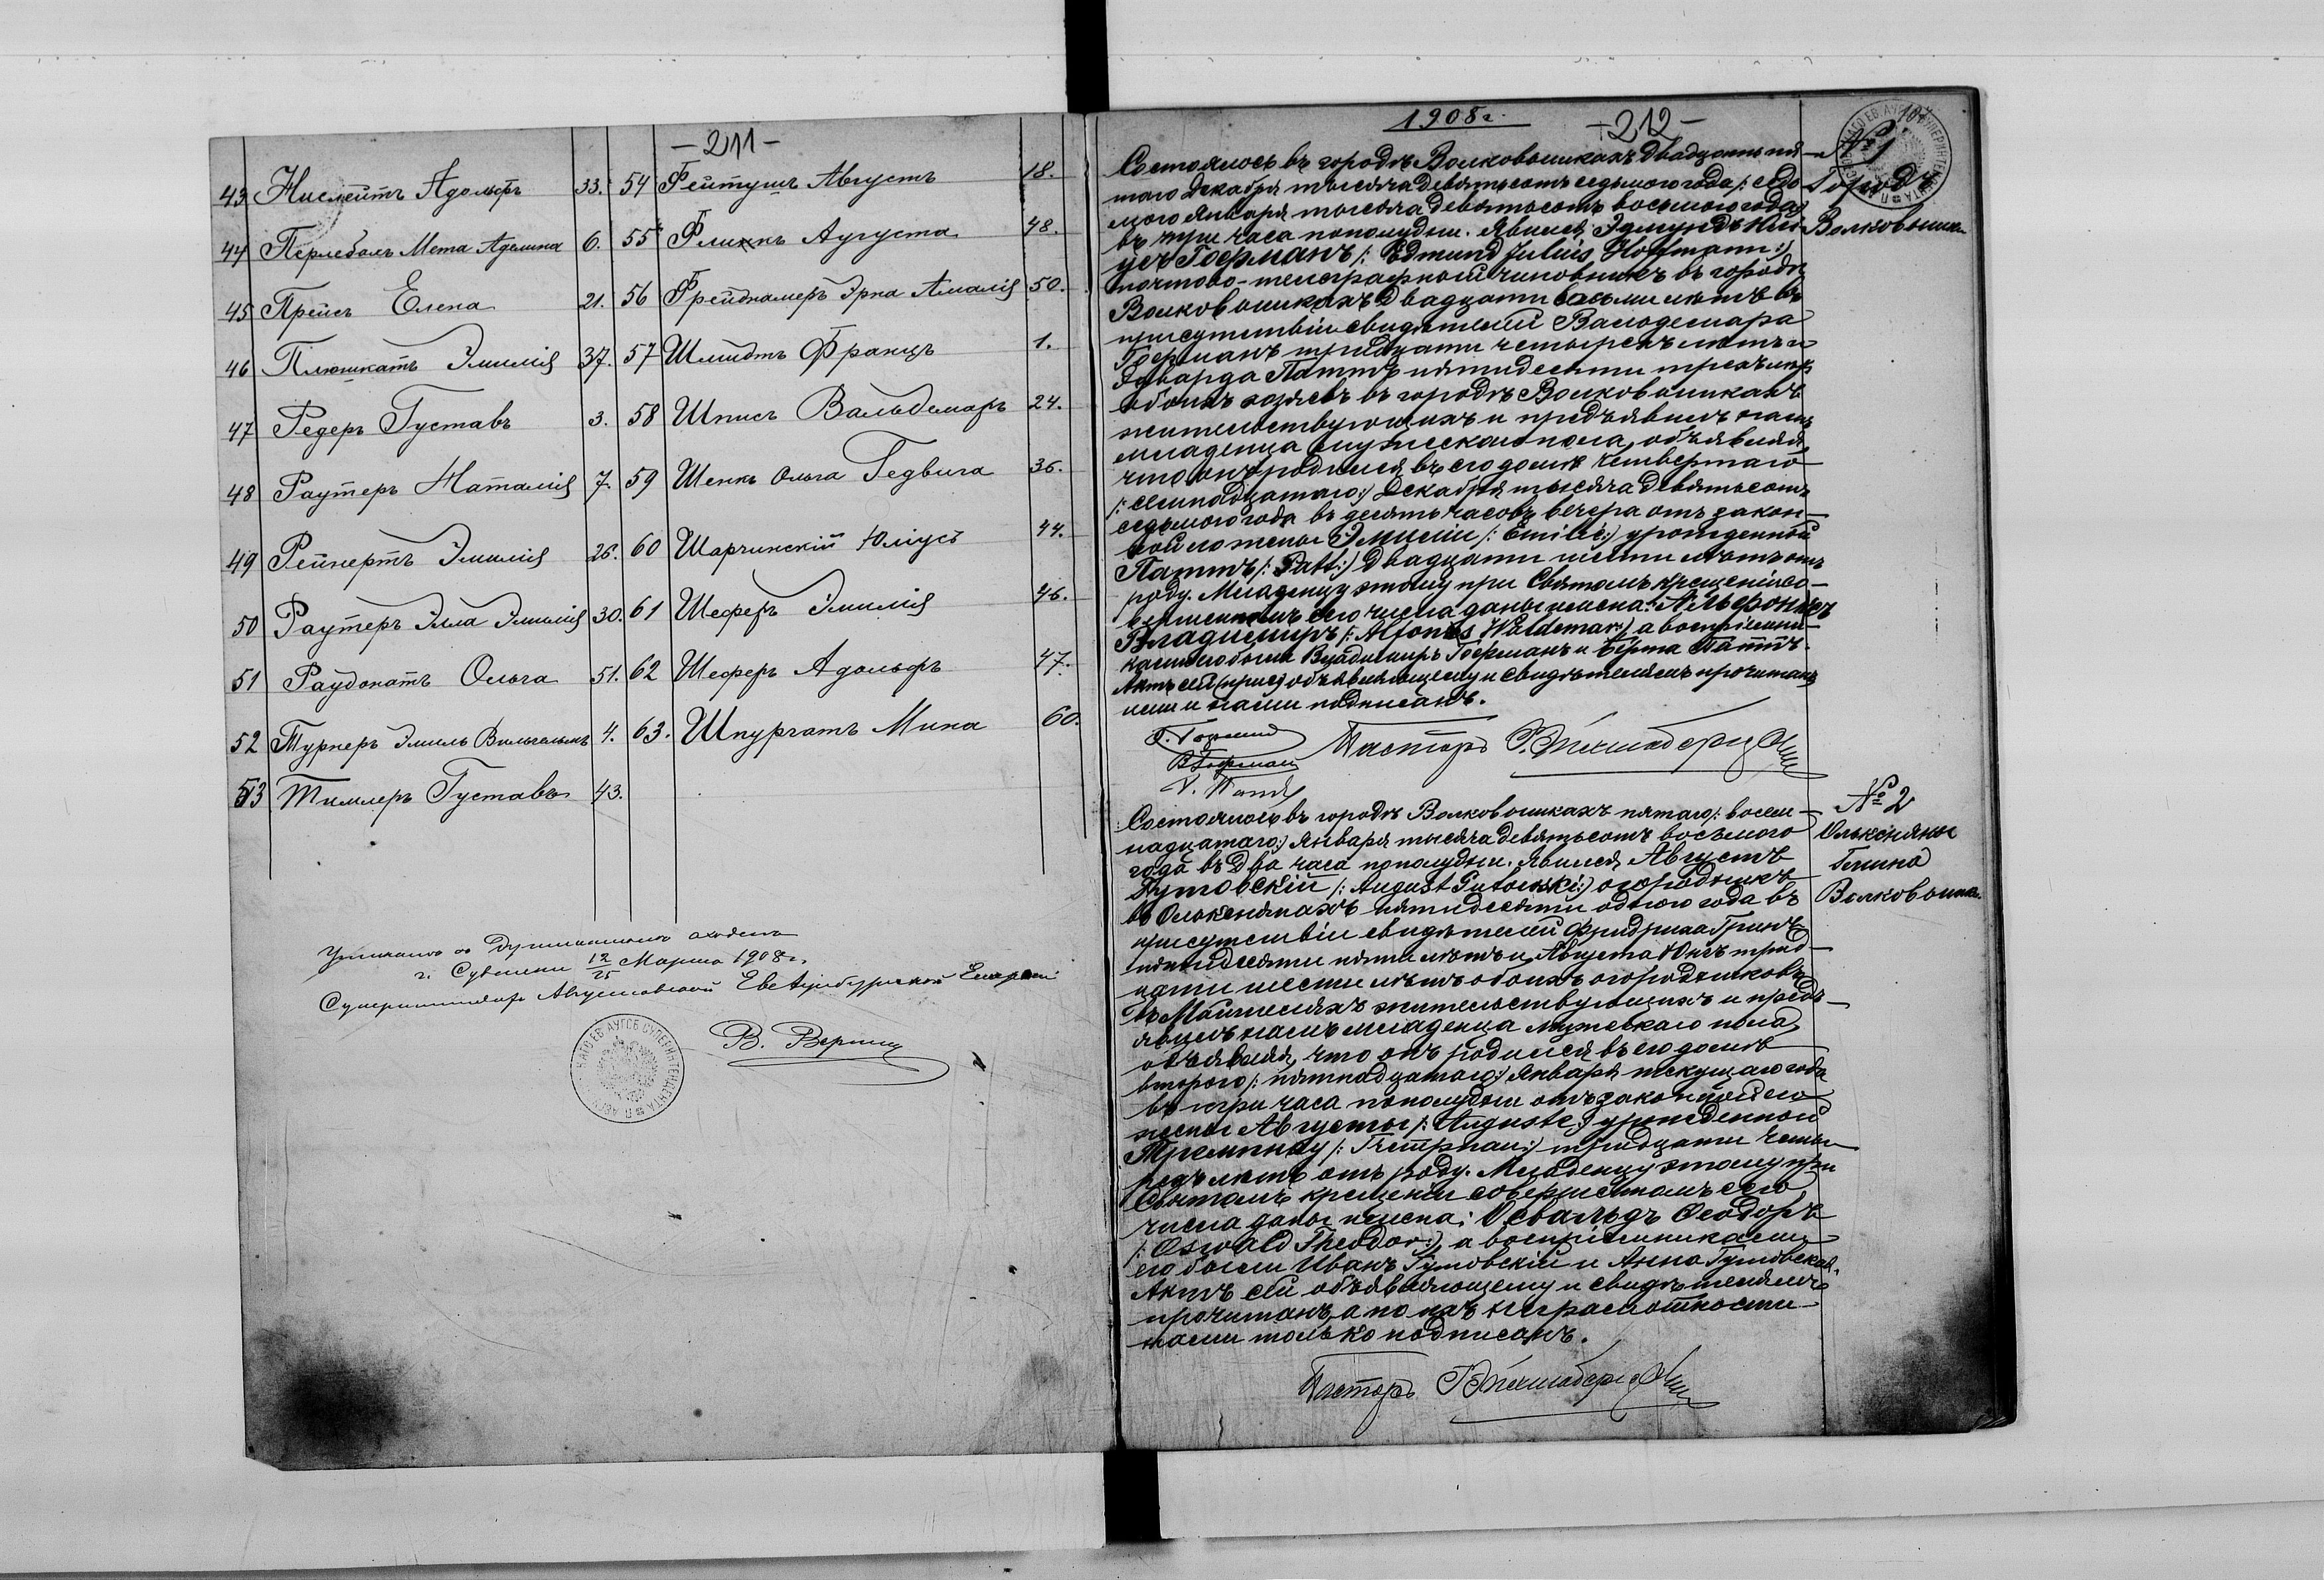 - 211 -
43 Нислейтъ Адольфъ 33.
44 Перлебахъ Мета Аделина 6.
45 Прейсъ Елена 21.
46 Плюшкатъ Эмилія 37.
47 Редеръ Густавъ 3.
48 Раутеръ Наталія 7.
49 Рейнертъ Эмилія 26.
50 Раутеръ Элла Эмилія 30.
51 Раудонатъ Ольга 51.
52 Турнеръ Эмиль Вильгельмъ 4.
53 Тиммлеръ Густавъ 43.
54 Фейтушъ Августъ 18.
55 Фликкъ Аугуста 48.
56 Фрейднамеръ Эрна Амалія 50.
57 Шмидтъ Францъ 1.
58 Шписъ Вальдемаръ 24.
59 Шенкъ Ольга Гедвига 36.
60 Шарчинскій Юліусъ 44.
61 Шеферъ Эмилія 46.
62 Шеферъ Адольфъ 47.
63. Шпургатъ Мина 60.
г. Сувалки 12/25 Марта 1908 г.
Суперинтендентъ Августовской Ев Аугсбургской Епархіи
В.
1908 г.
- 212 -
№ 1
Городъ
Волковышки
Состоялось въ городѣ Волковышкахъ двадцать пя-
таго Декабря тысяча девятьсотъ седьмого года /: седь-
мого Января тысяча девятьсотъ восьмого года :/
въ три часа пополудни. Явился Эдмундъ Юлі-
усъ Гофманъ /: Edmund Julius Hoffmann :/
почтово-телеграфный чиновникъ въ городѣ
Волковышкахъ двадцати восьми лѣтъ въ
присутствіи свидѣтелей Вальдемара
Гофманъ тридцати четырехъ лѣтъ и
Эдварда Паттъ пятидесяти трехъ лѣтъ
обоихъ хозяевъ въ городѣ Волковышкахъ
жительствующихъ и предъявилъ намъ
младенца мужескаго пола, объявляя,
что онъ родился въ его домѣ четвертаго
/: семнадцатаго :/ Декабря тысяча девятьсотъ
седьмого года въ десять часовъ вечера отъ закон-
ной его жены Эмиліи /: Emilie :/ урожденной
Паттъ /: Patt :/ двадцати шести лѣтъ отъ
роду. Младенцу этому при Святомъ крещеніи со-
вершенномъ сего числа даны имена: Альфонсъ
Владиміръ /: Alfons Waldemar :/ а воспріемни-
ками его были Владиміръ Гофманъ и Берта Паттъ.
Актъ сей объявляющему и свидѣтелямъ прочитанъ
ими и нами подписанъ.
В Гофманъ
Пасторъ
№ 2
Гмина
Волковышки
Состоялось въ городѣ Волковышкахъ пятаго /: восем-
надцатаго :/ Января тысяча девятьсотъ восьмого
года въ два часа пополудни. Явился Августъ
Гутовскій /: August Gutowski :/ огородникъ
въ Олькснянахъ пятидесяти одного года въ
присутствіи свидѣтелей Фридриха Гринъ
пятидесяти пяти лѣтъ и Августа Юнгъ трид-
цати шести лѣтъ обоихъ огородниковъ
въ жительствующихъ и предъ-
явилъ намъ младенца мужескаго пола,
объявляя, что онъ родился въ его домѣ
второго /: пятнадцатаго :/ Января текущаго года
въ три часа пополудни отъ законной его
жены Августы /: Auguste :/ урожденной
тридцати четы-
рехъ лѣтъ отъ роду. Младенцу этому при
Святомъ крещеніи совершенномъ сего
числа даны имена: Освальдъ Ѳеодоръ
/: Oswald Theodor :/, а воспріемниками
его были Иванъ Гутовскій и Анна Гутовская.
Актъ сей объявляющему и свидѣтелямъ
прочитанъ, а по ихъ неграмотности
нами только подписанъ.
Пасторъ